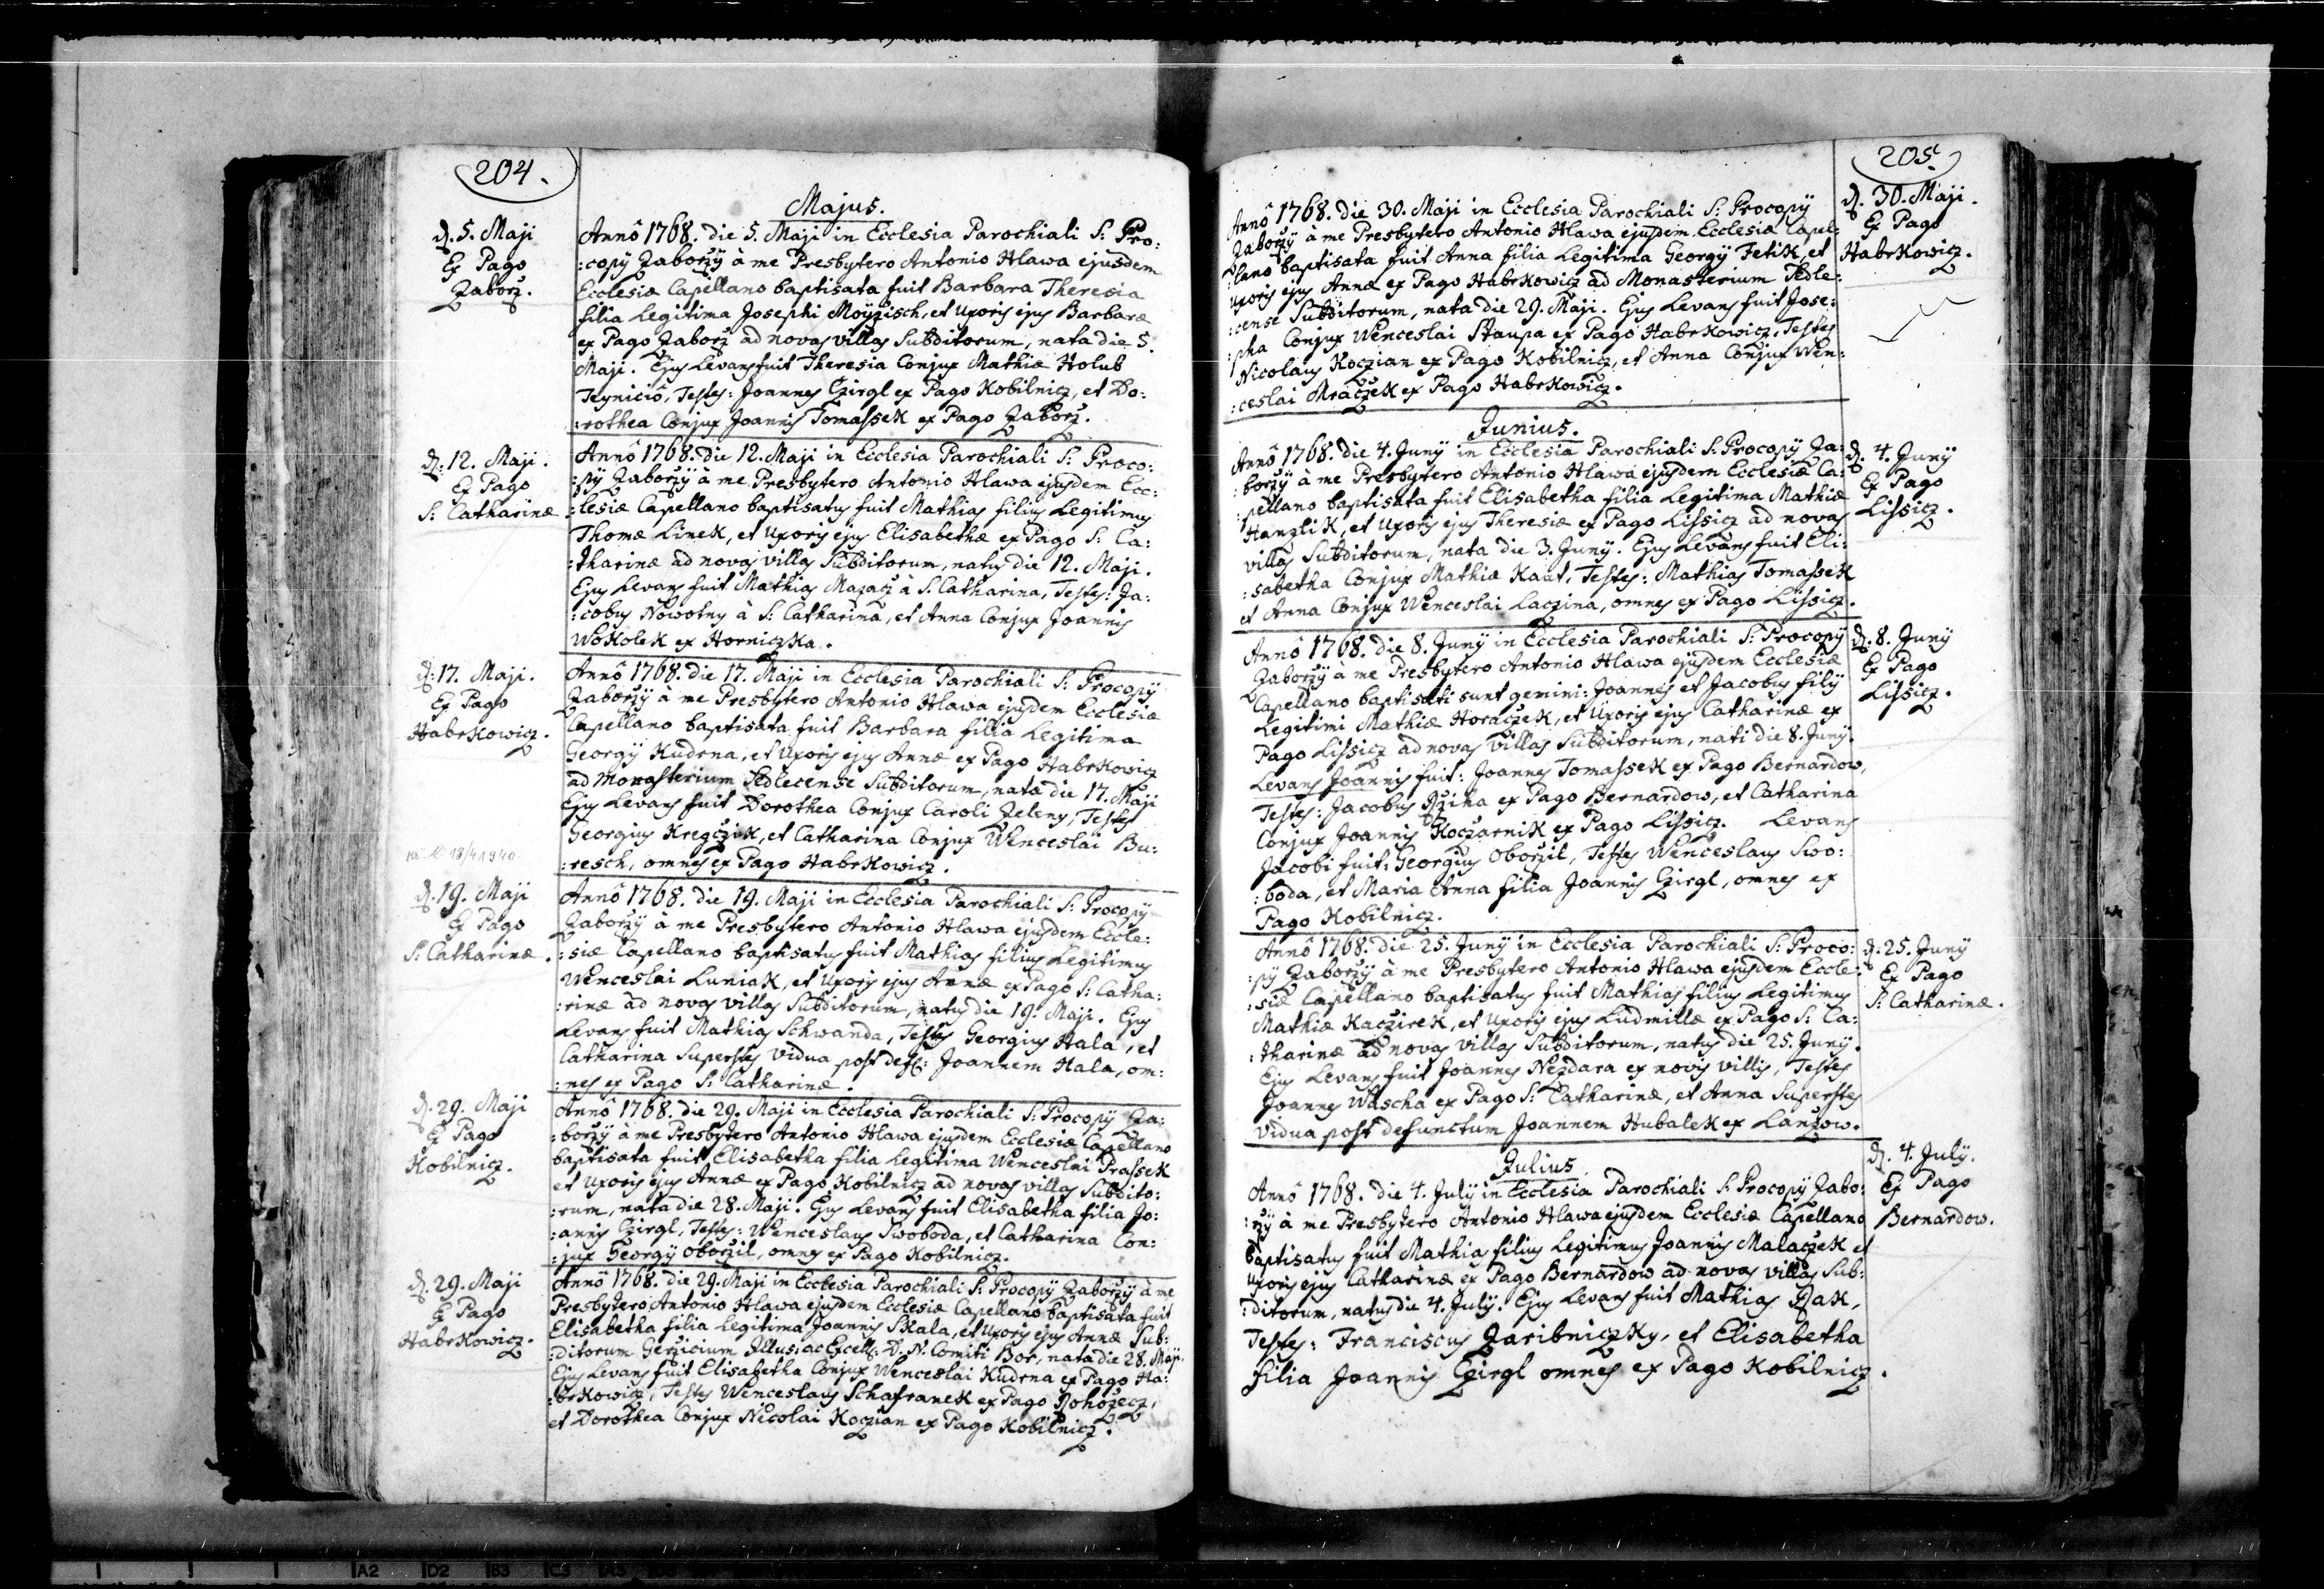 204.
Majus.
d. 5. Maji
Ex Pago
Zaborz.
Annô 1768. die 5. Maji in Ecclesia Parochiali S: Pro:
:copÿ Zaborzÿ à me Presbytero Antonio Hlawa ejusdem
Ecclesiæ Capellano baptisata fuit Barbara Theresia
filia Legitima Josephi Moyzisch, et Uxoris ejus Barbaræ
ex Pago Zaborz ad novas villas Subditorum, nata die 5.
Maji. Ejus Levans fuit Theresia Conjux Mathiæ Holub
Teyniciô, Testes: Joannes Czirgl ex Pago Kobilnicz, et Do:
:rothea Conjux Joannis Tomassek ex Pago Zaborz.
d: 12. Maji.
Ex Pago
S: Catharinæ
Annô 1768. die 12. Maji in Ecclesia Parochiali S: Proco:
:pÿ Zaborzÿ à me Presbytero Antonio Hlawa ejusdem Ecc:
:lesiæ Capellano baptisatus fuit Mathias filius Legitimus
Thomæ Linek, et Uxoris ejus Elisabethæ ex Pago S: Ca:
:tharinæ ad novas villas Subditorum, natus die 12. Maji.
Ejus Levans fuit Mathias Mazacz à S. Catharina, Testes: Ja:
:cobus Nowotny à S: Catharina, et Anna Conjux Joannis
Wokolek ex Horniczka.
d: 17. Maji.
Ex Pago
Habrkowicz.
Annô 1768. die 17. Maji in Ecclesia Parochiali S: Procopÿ
Zaborzÿ à me Presbytero Antonio Hlawa ejusdem Ecclesiæ
Capellano baptisata fuit Barbara filia Legitima
Georgÿ Kudrna, et Uxoris ejus Annæ ex Pago Habrkowicz
ad Monasterium Sedlecense Subditorum, nata die 17. Maji
Ejus Levans fuit Dorothea Conjux Caroli Zeleny, Testes
Georgius Kregczik, et Catharina Conjux Wenceslai Bu:
:resch, omnes ex Pago Habrkowicz.
18/4 1940
d. 19. Maji
Ex Pago
S: Catharinæ.
Annô 1768. die 19. Maji in Ecclesia Parochiali S: Procopÿ
Zaborzÿ à me Presbytero Antonio Hlawa ejusdem Eccle:
:siæ Capellano baptisatus fuit Mathias filius Legitimus
Wenceslai Luniak, et Uxoris ejus Annæ ex Pago S: Catha:
:rinæ ad novas villas Subditorum, natus die 19. Maji. Ejus
Levans fuit Mathias Schwanda, Testes Georgius Hala, et
Catharina Superstes vidua post def: Joannem Hala, om:
:nes ex Pago S: Catharinæ.
d. 29. Maji
Ex Pago
Kobilnicz.
Annô 1768. die 29. Maji in Ecclesia Parochiali S: Procopÿ Za:
:borzÿ à me Presbytero Antonio Hlawa ejusdem Ecclesiæ Capellano
baptisata fuit Elisabetha filia Legitima Wenceslai Prassek
et Uxoris ejus Annæ ex Pago Kobilnicz ad novas villas Subdito:
:rum, nata die 28. Maji. Ejus Levans fuit Elisabetha filia Jo:
:annis Czirgl, Testes: Wenceslaus Swoboda, et Catharina Con:
:jux Georgÿ Oborzil, omnes ex Pago Kobilnicz.
d. 29. Maji
Ex Pago
Habrkowicz.
Annô 1768. die 29. Maji in Ecclesia Parochiali S: Procopÿ Zaborzÿ à me
Presbytero Antonio Hlawa ejusdem Ecclesiæ Capellano baptisata fuit
Elisabetha filia Legitima Joannis Skala, et Uxoris ejus Annæ Sub:
:ditorum Gerzicium Illus: ac Excell: D. N. Comiti Bor, nata die 28. Maji.
Ejus Levans fuit Elisabetha Conjux Wenceslai Kudrna ex Pago Ha:
:brkowicz, Testes Wenceslaus Schafranek ex Pago Rohozecz,
et Dorothea Conjux Nicolai Koczian ex Pago Kobilnicz.
205
d. 30. Maji.
Ex Pago
Habrkowicz.
Annô 1768. die 30. Maji in Ecclesia Parochiali S: Procopÿ
Zaborzÿ à me Presbytero Antonio Hlawa ejusdem Ecclesiæ Capel:
:lano baptisata fuit Anna filia Legitima Georgÿ Fetik, et
Uxoris ejus Annæ ex Pago Habrkowicz ad Monasterium Sedle:
:cense Subditorum, nata die 29. Maji. Ejus Levans fuit Jose:
:pha Conjux Wenceslai Staupa ex Pago Habrkowicz, Testes
Nicolaus Koczian ex Pago Kobilnicz, et Anna Conjux Wen:
:ceslai Mraczek ex Pago Habrkowicz.
Junius.
d. 4. Junÿ
Ex Pago
Lissicz.
Annô 1768. die 4. Junÿ in Ecclesia Parochiali S: Procopÿ Za:
:borzÿ à me Presbytero Antonio Hlawa ejusdem Ecclesiæ Ca:
:pellano baptisata fuit Elisabetha filia Legitima Mathiæ
Hanzlik, et Uxoris ejus Theresiæ ex Pago Lissicz ad novas
villas Subditorum, nata die 3. Junÿ. Ejus Levans fuit Eli:
:sabetha Conjux Mathiæ Kaut, Testes: Mathias Tomassek
et Anna Conjux Wenceslai Laczina, omnes ex Pago Lissicz.
d. 8. Junÿ
Ex Pago
Lissicz.
Annô 1768. die 8. Junÿ in Ecclesia Parochiali S: Procopÿ
Zaborzÿ à me Presbytero Antonio Hlawa ejusdem Ecclesiæ
Capellano baptisati sunt gemini: Joannes et Jacobus filÿ
Legitimi Mathiæ Horaczek, et Uxoris ejus Catharinæ ex
Pago Lissicz ad novas villas Subditorum, nati die 8. Junÿ.
Levans Joannis fuit: Joannes Tomassek ex Pago Bernardow,
Testes: Jacobus Rziha ex Pago Bernardow, et Catharina
Conjux Joannis Koczarnik ex Pago Lissicz. Levans
Jacobi fuit: Georgius Oborzil, Testes Wenceslaus Swo:
:boda, et Maria Anna filia Joannis Czirgl, omnes ex
Pago Kobilnicz.
d: 25. Junÿ
Ex Pago
S: Catharinæ.
Annô 1768. die 25. Junÿ in Ecclesia Parochiali S: Proco:
:pÿ Zaborzÿ à me Presbytero Antonio Hlawa ejusdem Eccle:
:siæ Capellano baptisatus fuit Mathias filius Legitimus
Mathiæ Kaczirek, et Uxoris ejus Ludmillæ ex Pago S: Ca:
:tharinæ ad novas villas Subditorum, natus die 25. Junÿ.
Ejus Levans fuit Joannes Nezdara ex novis villis, Testes
Joannes Wascha ex Pago S: Catharinæ, et Anna Superstes
vidua post defunctum Joannem Hubalek ex Lanzow.
Julius
d. 4. July.
Ex Pago
Bernardow.
Annô 1768. die 4. July in Ecclesia Parochiali S: Procopÿ Zabo:
:rzÿ à me Presbytero Antonio Hlawa ejusdem Ecclesiæ Capellano
baptisatus fuit Mathias filius Legitimus Joannis Malaczek et
Uxoris ejus Catharinæ ex Pago Bernardow ad novas villas Sub:
:ditorum, natus die 4. July. Ejus Levans fuit Mathias Zak,
Testes: Franciscus Zaribniczky, et Elisabetha
filia Joannis Czirgl omnes ex Pago Kobilnicz.
A2 D2 B3 C3